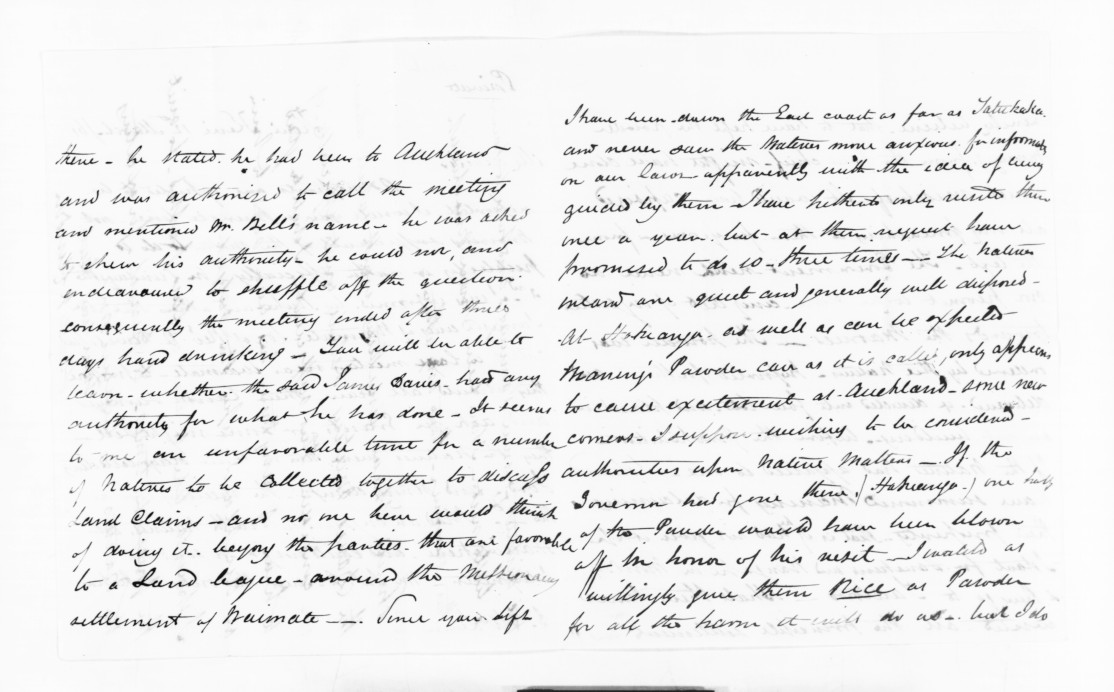 there - he stated he had been to Auckland
and was authorised to call the meeting
and mentioned Mr. Bell's name - he was asked
to shew his authority - he could not, and
endeavoured to shuffle off the question.
consequently the meeting ended after three
days hard drinking - You will be able to
learn - whether the said James Davis - had any
authority for what he has done - It seems
to me an unfavorable time for a number
of Natives to be collected together to discuss
Land Claims - and no one here would think
of doing it - beyong the parties that are favorable
to a Land league - around the Missionary
settlement of Waimate -. Since you left
I have been down the East coast as far as
and never saw the Natives more anxious for information
on our laws - apparently with the idea of being
guided by them - I have hitherto only visited them
once a year - but at their request have
promised to do so - three times - The Natives
inland are quiet and generally well disposed -
At Hokianga as well as can be expected
Maning's Powder case as it is called, only appears
to cause excitement at Auckland - some new
comers - I suppose wishing to be considered -
authorities upon Native Matters - If the
Governor had gone there (Hokianga) one half
of the Powder would have been blown
off in honor of his visit - I would as
willingly give them Rice as Powder
for all the harm it will do us - but I do